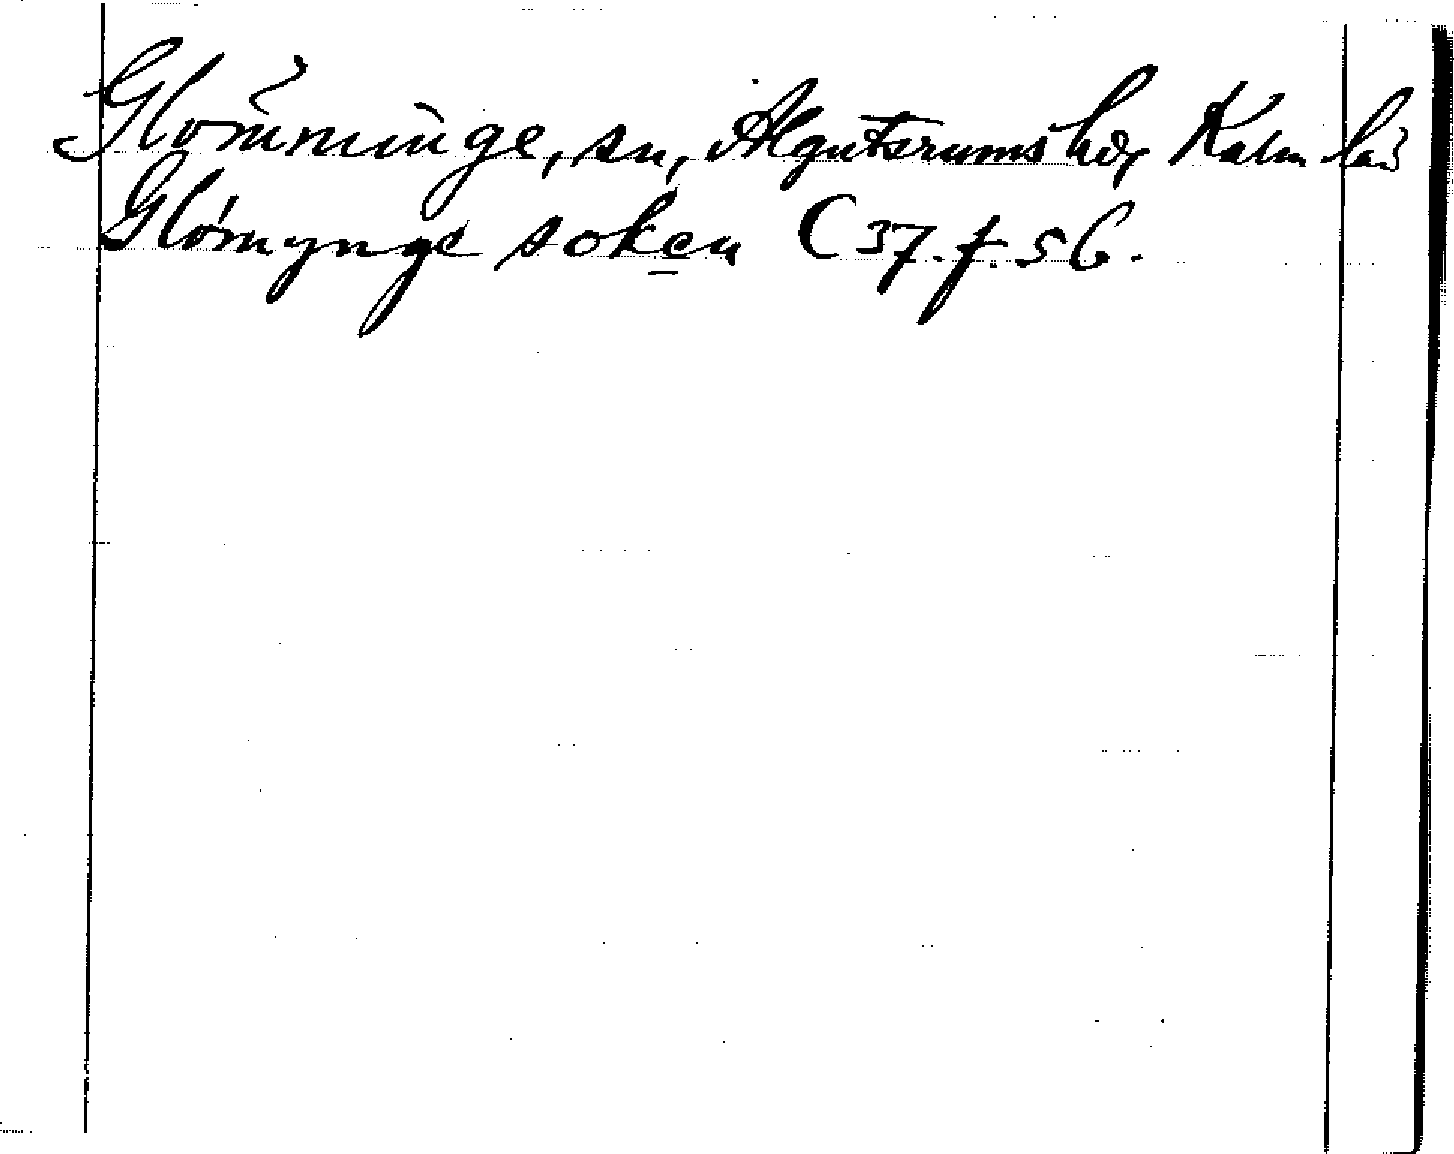 Glömminge, sn, Algutsrums hd, Kalm län
Glömynge soken C 37. f. 56.